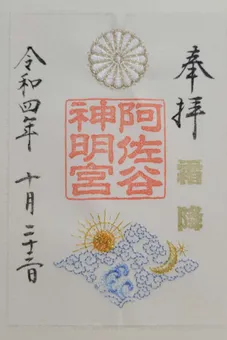 奉拝
霜降
阿佐谷
神明宮
令和四年 十月二十三日